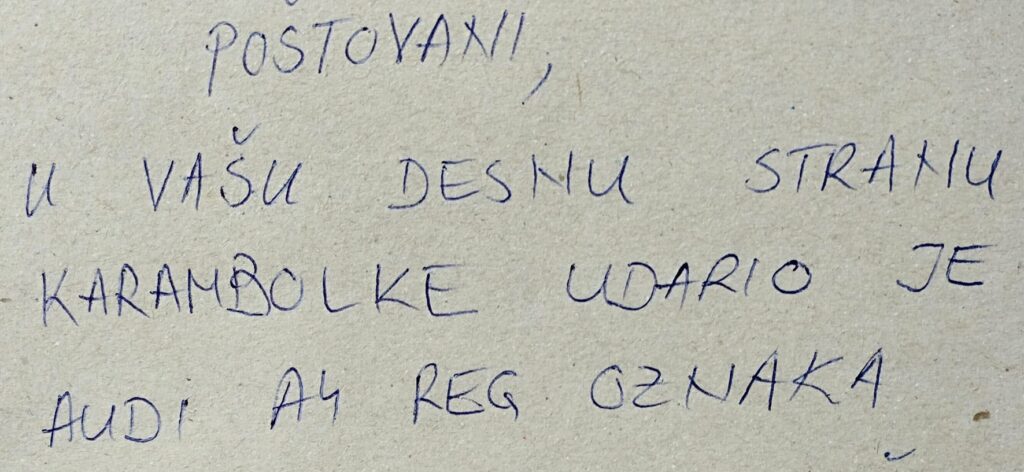 POŠTOVANI,
U VAŠU DESNU STRANU
KARAMBOLKE UDARIO JE
AUDI A4 REG OZNAKA